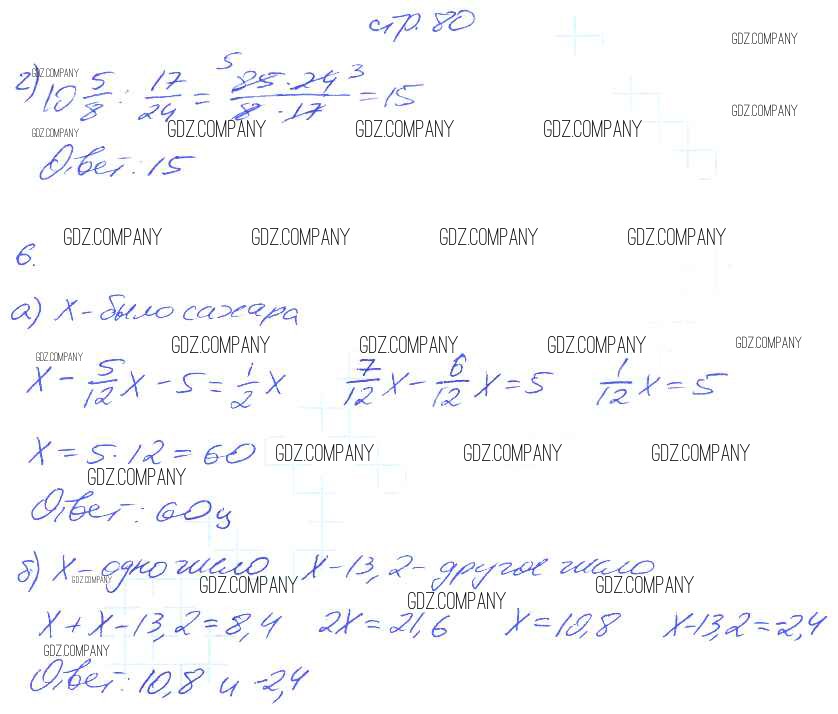 стр. 80
GDZ.COMPANY
GDZ.COMPANY
г) 10 5/8 : 17/24 = 85·24/8·17 = 15
5 3
GDZ.COMPANY
GDZ.COMPANY GDZ.COMPANY GDZ.COMPANY GDZ.COMPANY
Ответ: 15
GDZ.COMPANY GDZ.COMPANY GDZ.COMPANY GDZ.COMPANY
6.
а) X - было сахара
GDZ.COMPANY GDZ.COMPANY GDZ.COMPANY GDZ.COMPANY GDZ.COMPANY
X - 5/12 X - 5 = 1/2 X 7/12 X - 6/12 X = 5 1/12 X = 5
X = 5·12 = 60
GDZ.COMPANY GDZ.COMPANY GDZ.COMPANY
GDZ.COMPANY
Ответ: 60 ц
б) X - одно число X - 13,2 - другое число
GDZ.COMPANY GDZ.COMPANY GDZ.COMPANY GDZ.COMPANY
X + X - 13,2 = 8,4 2X = 21,6 X = 10,8 X - 13,2 = -2,4
GDZ.COMPANY
Ответ: 10,8 и -2,4